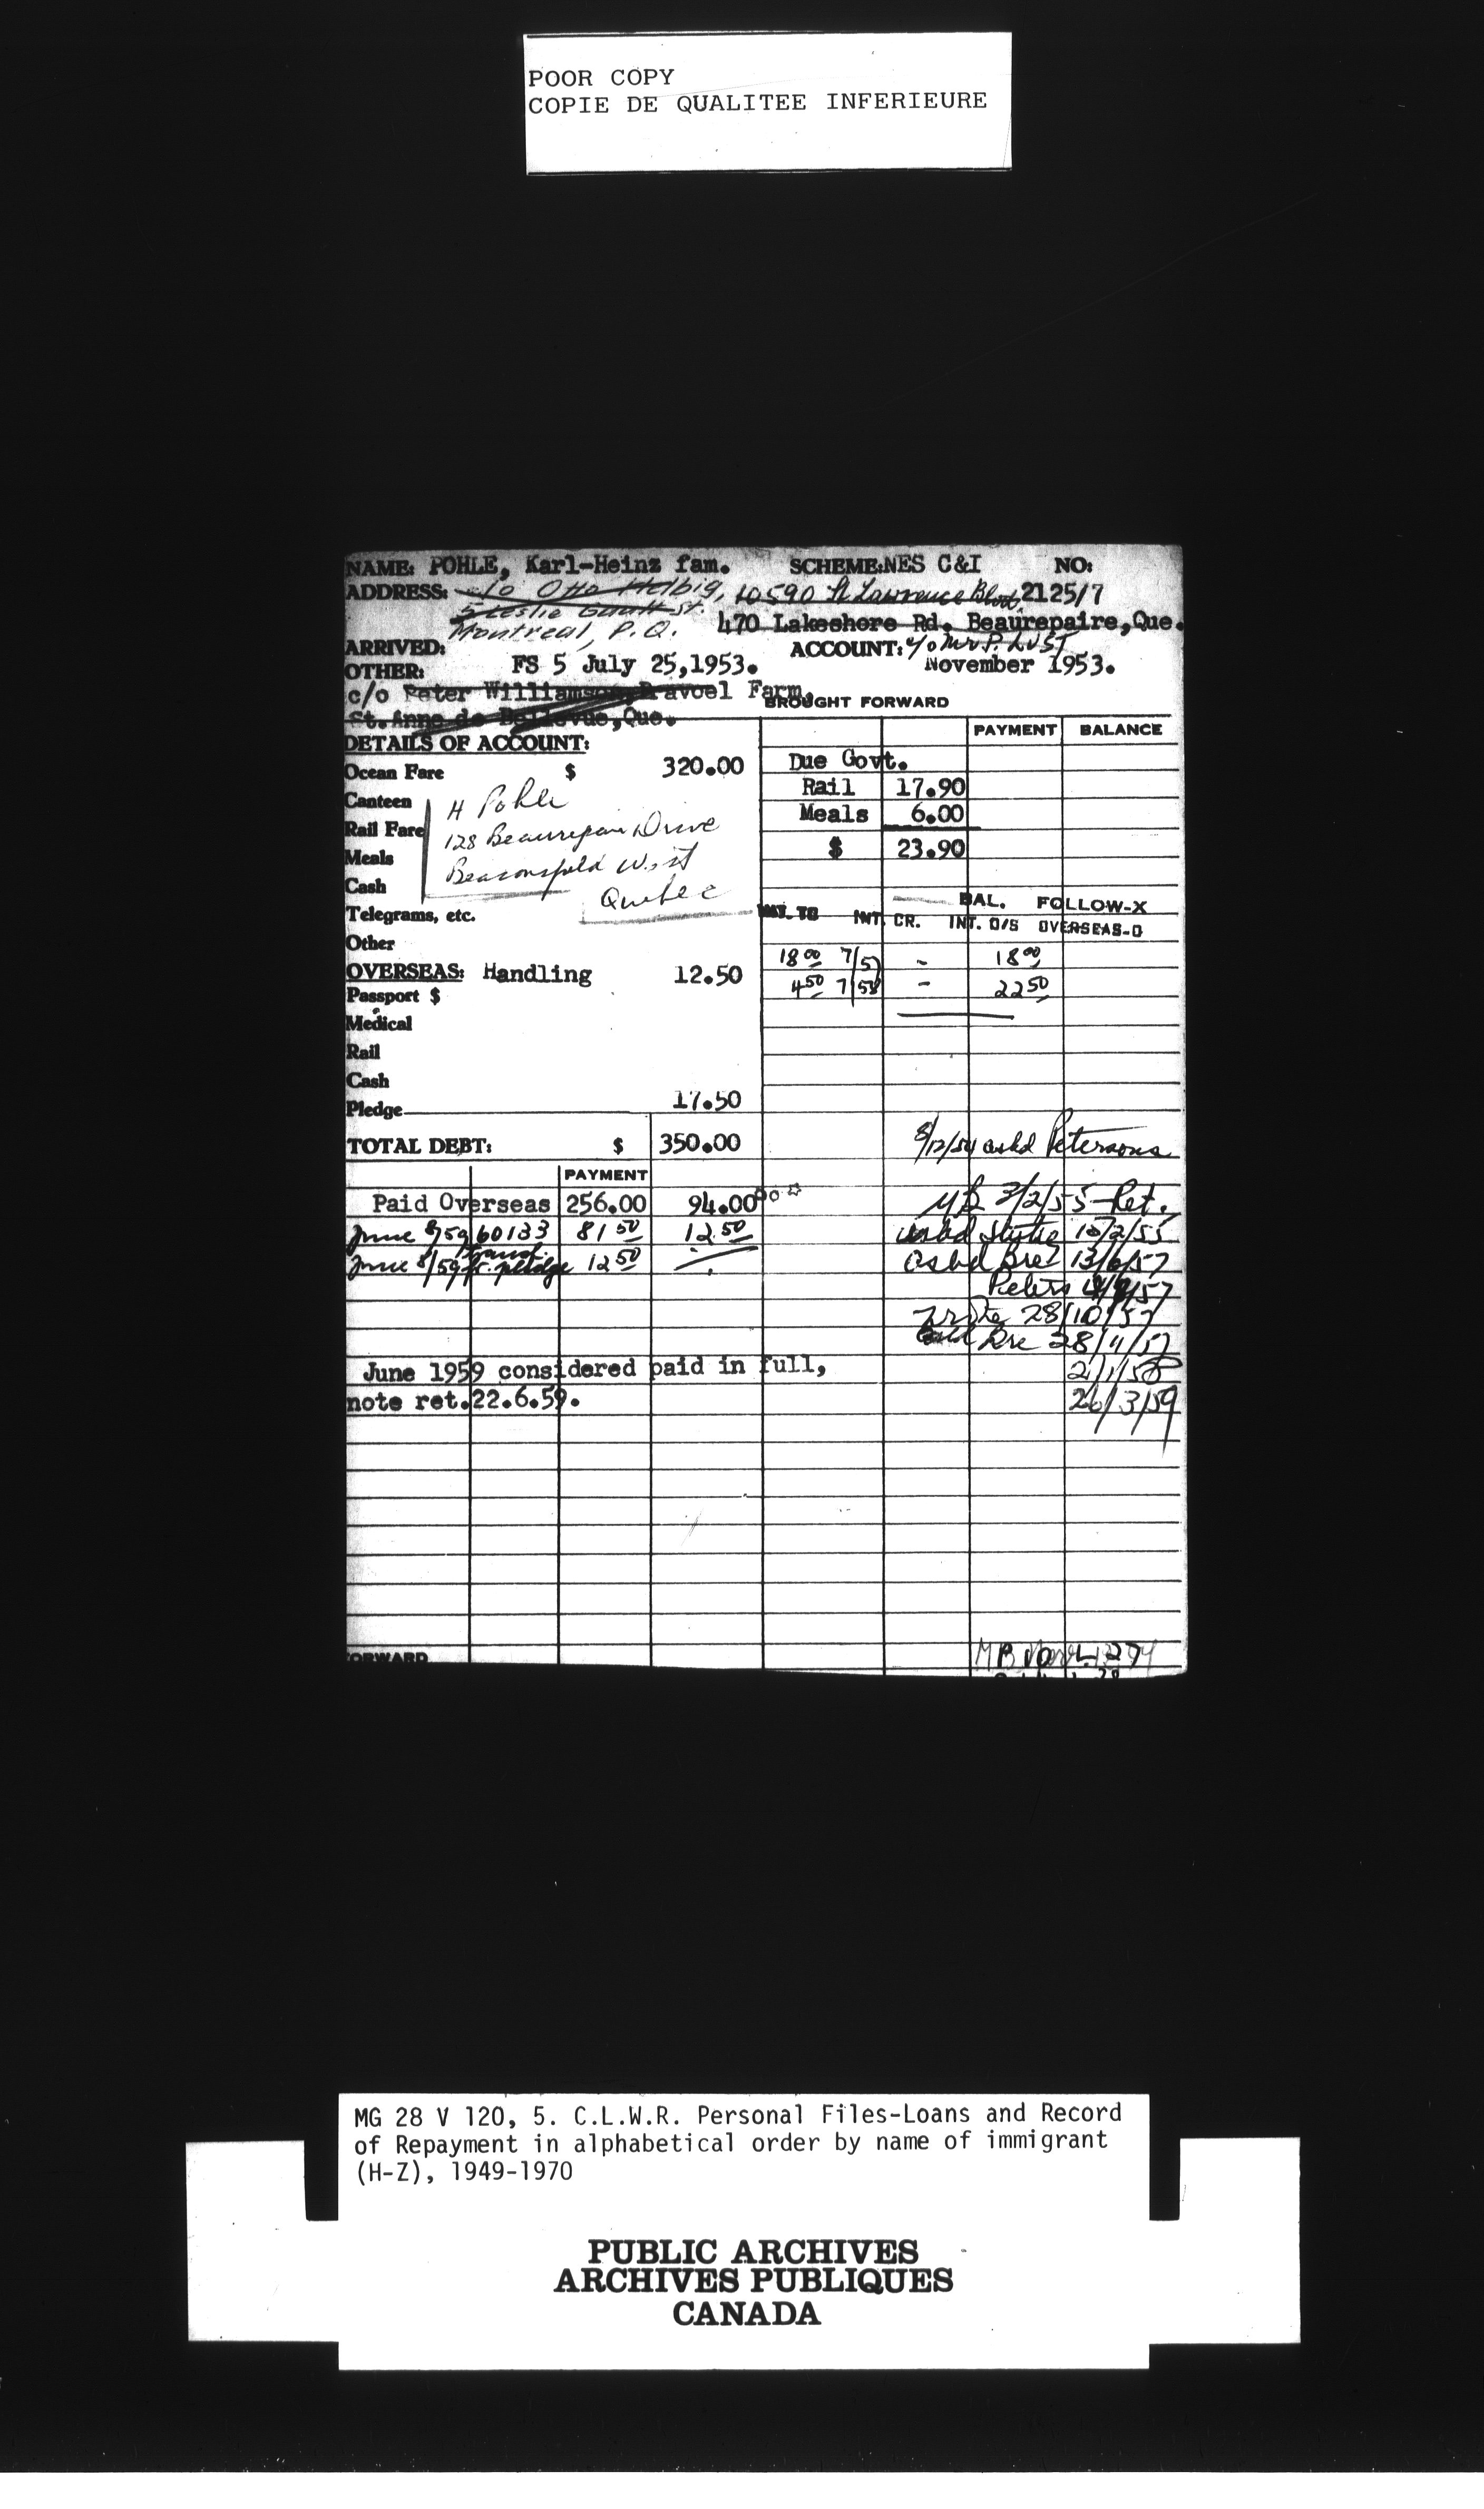 POOR COPY
COPIE DE QUALITEE INFERIEURE
NAME: POHLE, Karl-Heinz fam. SCHEME:NES C&I NO:
ADDRESS: c/o Otto Helbig, 10590 St Lawrence Blvd, 2125/7
5 Leslie Gault St.
Montreal, P.Q. 470 Lakeshore Rd. Beaurepaire,Que.
ARRIVED: ACCOUNT: c/o Mr P. LUST
OTHER: FS 5 July 25,1953. November 1953.
c/o Peter Williamson, Farm,
St.Anne de Bellevue,Que. BROUGHT FORWARD
DETAILS OF ACCOUNT: PAYMENT BALANCE
Ocean Fare $ 320.00 Due Govt.
Canteen H Pohle Rail 17.90
Rail Fare 128 Beaurepaire Drive Meals 6.00
Meals Beaconsfield West $ 23.90
Cash Quebec
Telegrams, etc. INT. TO INT. CR. BAL. INT. O/S FOLLOW-X OVERSEAS-O
Other 18 00 7/57 - 18 00
OVERSEAS: Handling 12.50 4 50 7/58 - 22 50
Passport $
Medical
Rail
Cash
Pledge 17.50
TOTAL DEBT: $ 350.00 8/12/54 askd Petersons
PAYMENT
Paid Overseas 256.00 94.00 3/2/55 Ret.
June 8/59 60133 81 50 12 50 askd 15/2/55
June 8/59 transf. fr. pledge 12 50 askd Bre 13/6/57
Wrote 28/10/57
Bre 28/11/57
June 1959 considered paid in full, 2/1/58
note ret.22.6.59. 26/3/59
FORWARD
MG 28 V 120, 5. C.L.W.R. Personal Files-Loans and Record
of Repayment in alphabetical order by name of immigrant
(H-Z), 1949-1970
PUBLIC ARCHIVES
ARCHIVES PUBLIQUES
CANADA